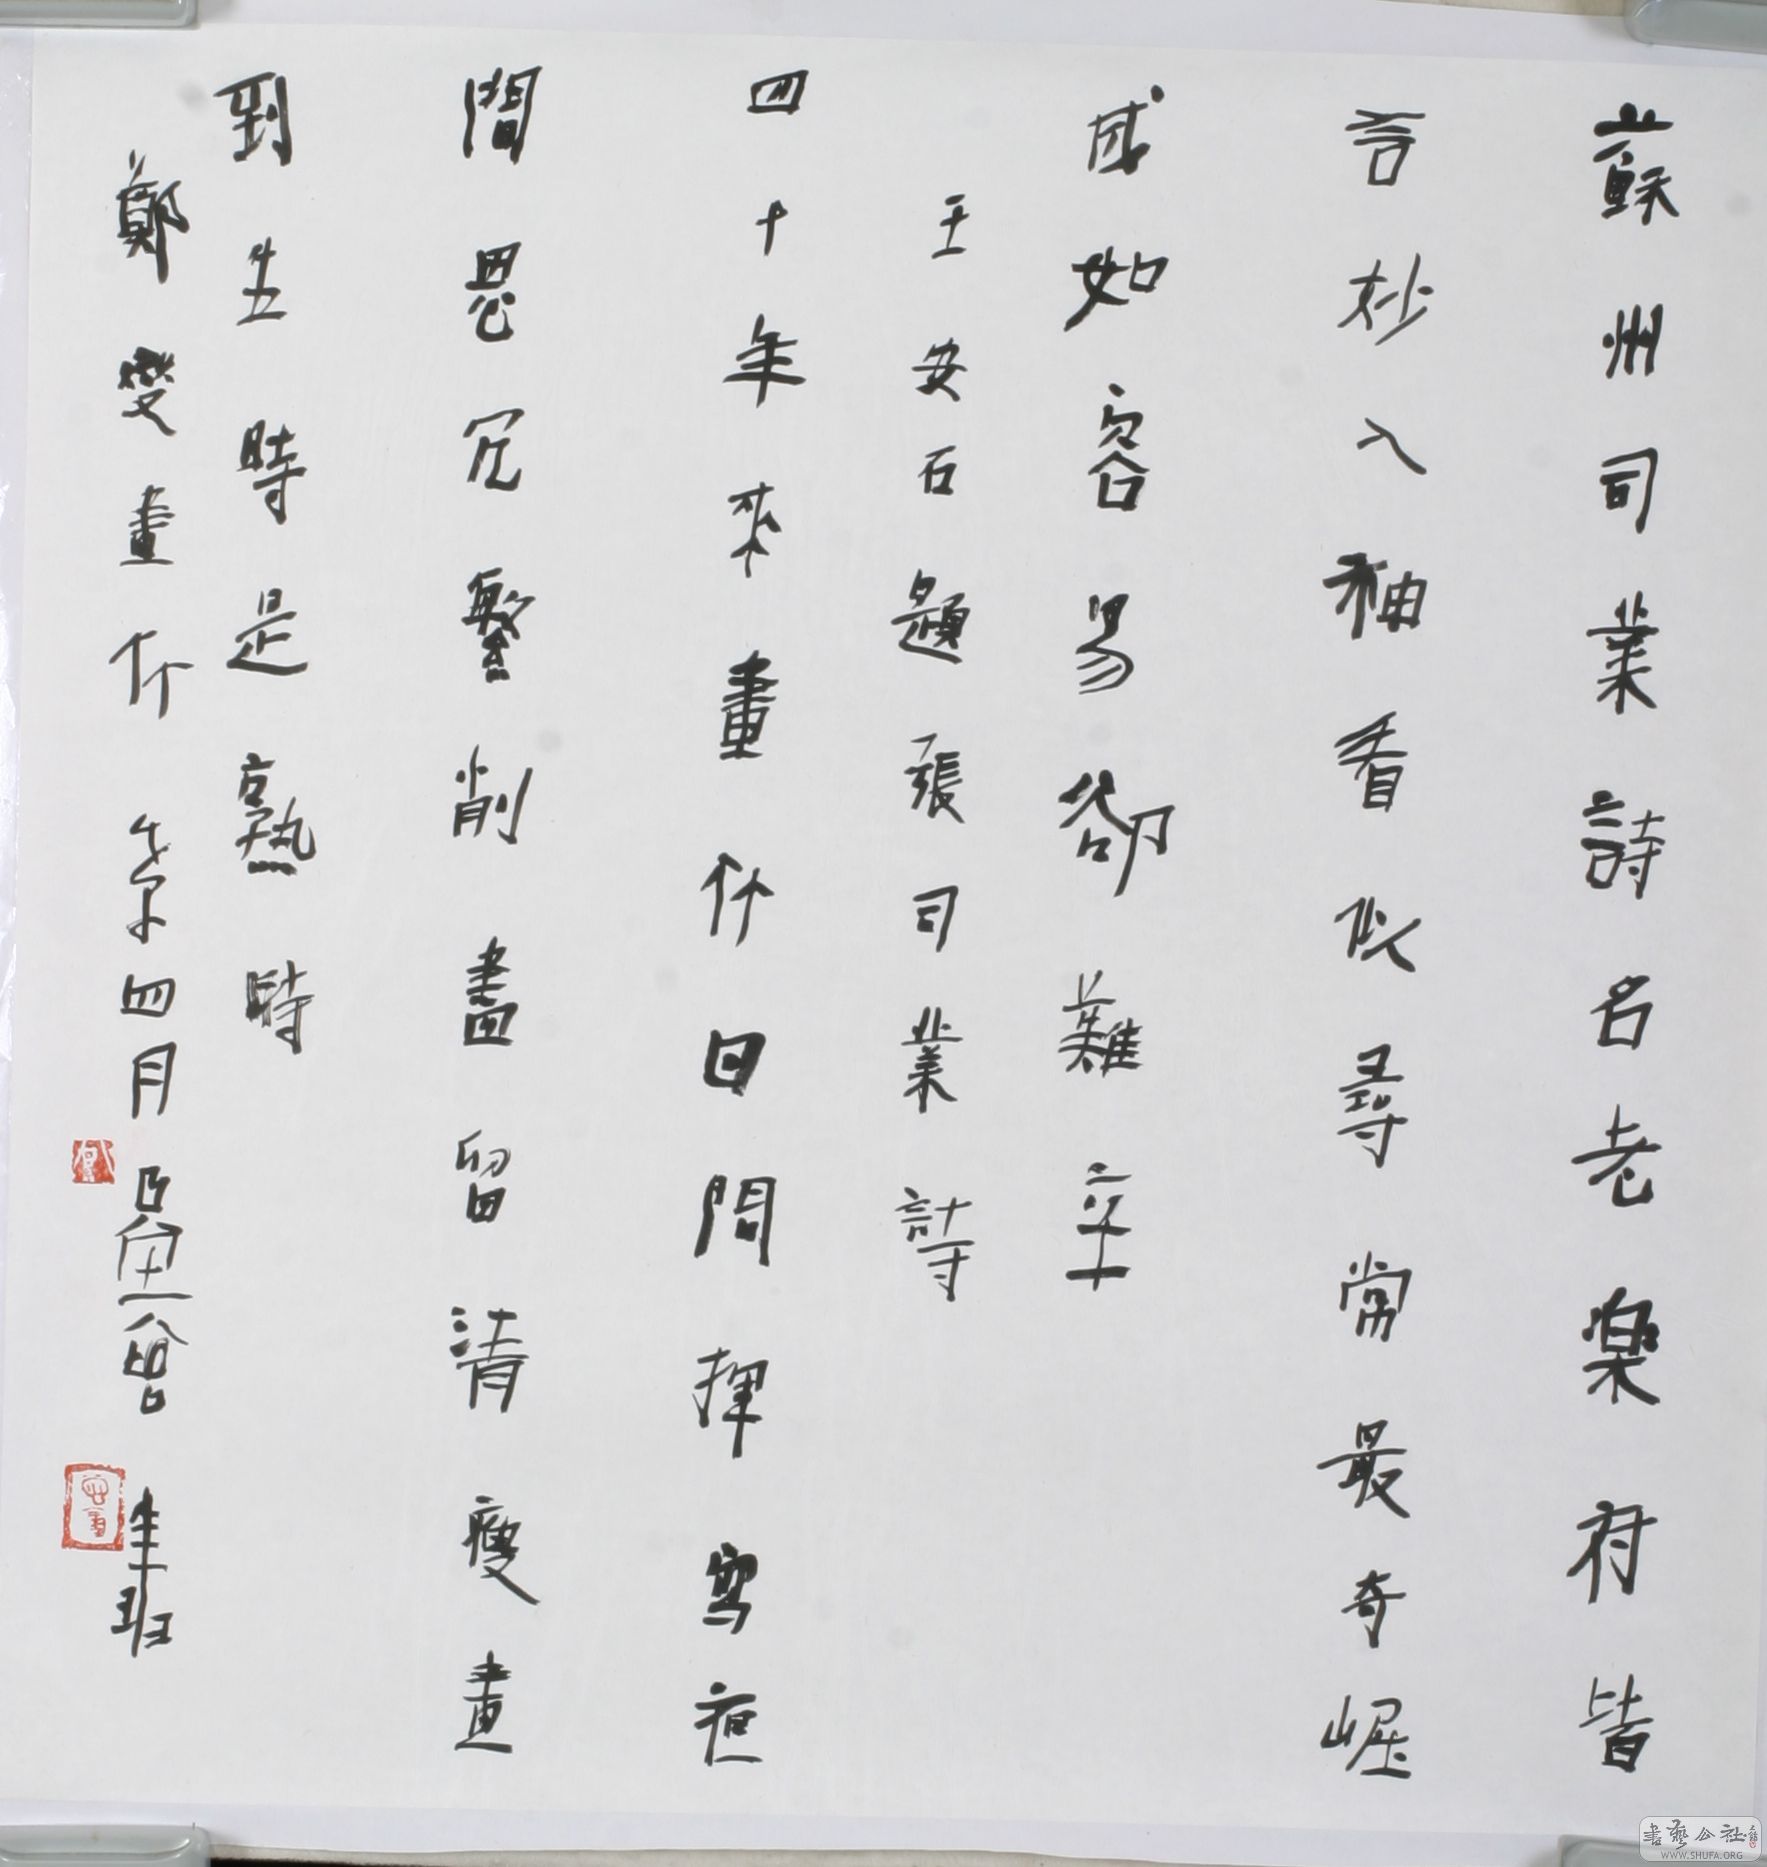 蘇州司業詩名老樂府皆
言妙入神看似尋常最奇崛
成如容易卻難辛
王安石題張司業詩
四十年來畫竹日間揮寫夜
間思冗繁削盡留清瘦畫
到生時是熟時
鄭燮畫竹 四月
書藝公社
WWW.SHUFA.ORG